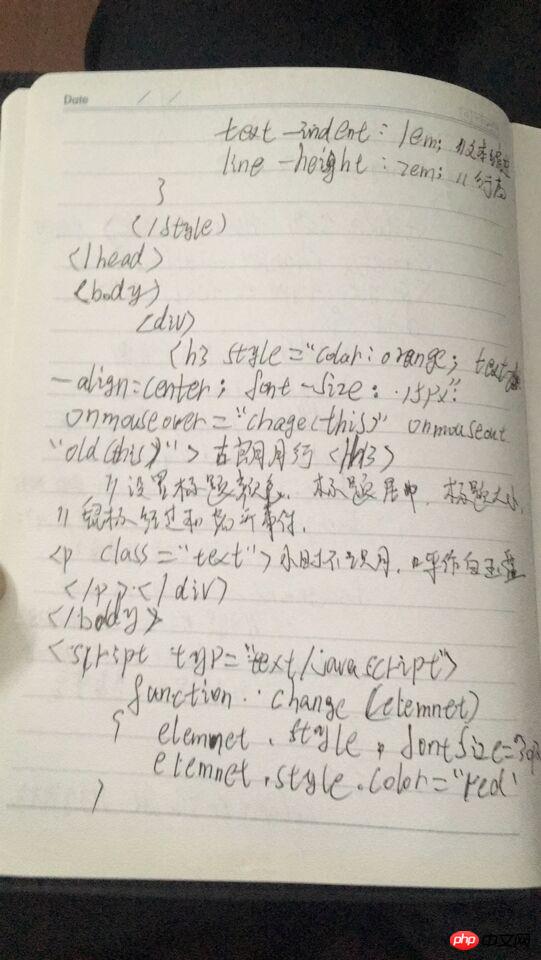 Date / /
text-indent: 1em; //文本缩进
line-height: 2em; //行高
}
</style>
</head>
<body>
<div>
<h3 style="color: orange; text
-align=center; font-size: 15px"
onmouseover="chage(this)" onmouseout
"old(this)"> 古朗月行 </h3>
//设置标题颜色. 标题居中. 标题大小.
//鼠标经过和离开事件.
<p class="text">小时不识月, 呼作白玉盘
</p></div>
</body>
<script typ="text/javascript">
function change (elemnet)
{ elemnet.style.fontSize=30px
elemnet.style.color="red"
}
php 中文网